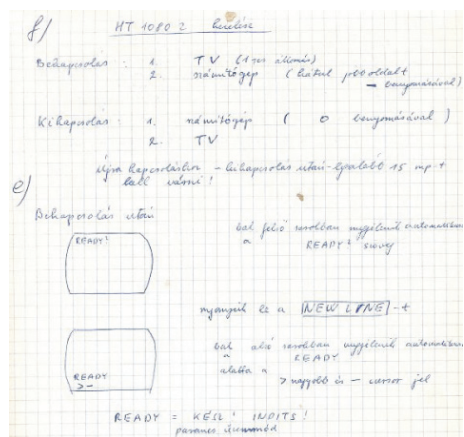 f/ HT 1080 Z kezelése
Bekapcsolás : 1. TV (1-es állomás)
2. számítógép (hátul jobboldalt
— benyomásával)
Kikapcsolás : 1. számítógép ( O benyomásával )
2. TV
Újra kapcsoláshoz - kikapcsolás után - legalább 15 mp-t
kell várni !
e)
Bekapcsolás után
READY?
bal felső sarokban megjelenik automatikusan
a READY? szöveg
nyomjuk le a NEW LINE -t
bal alsó sarokban megjelenik automatikusan
a READY
alatta a
> nagyobb és — cursor jel
READY
>-
READY = KÉSZ! INDÍTS!
parancs üzemmód